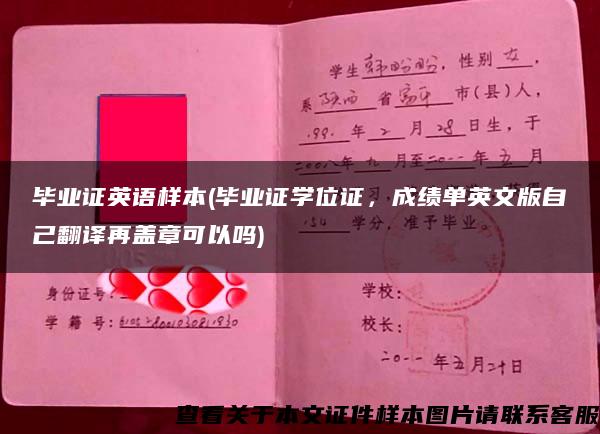 学生韩盼盼，性别女，
系陕西省富平市(县)人，
1991年2月28日生，于
二00八年九月至二0一一年五月
毕业证英语样本(毕业证学位证，成绩单英文版自
己翻译再盖章可以吗)
154学分，准予毕业。
身份证号：
学籍号：
学校：
校长：
二0一一年五月二十日
查看关于本文证件样本图片请联系客服